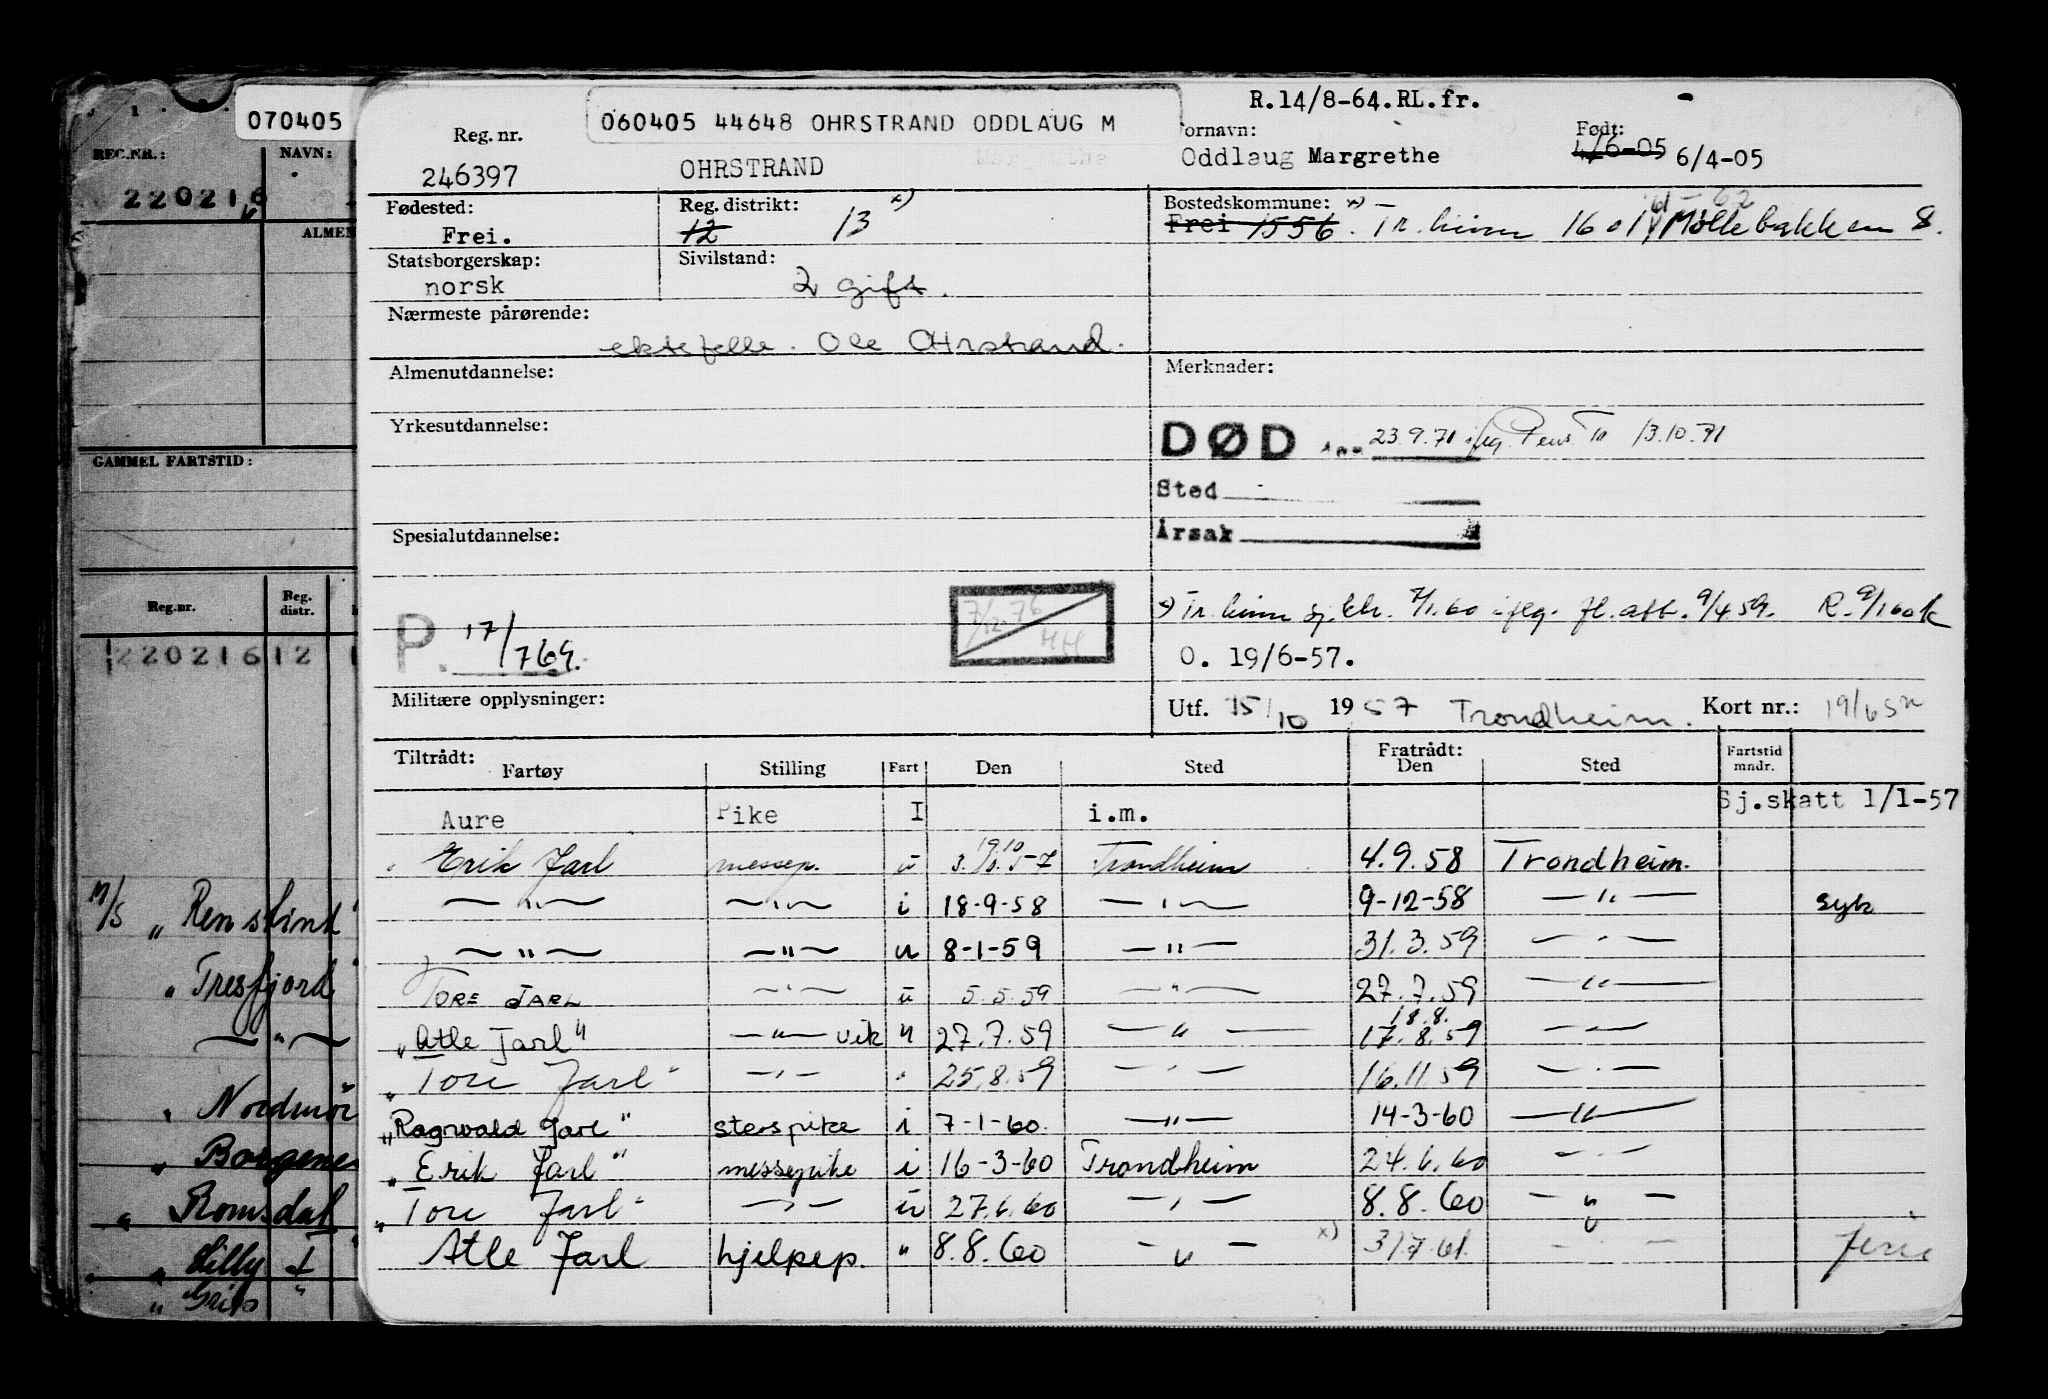 070405
REG.NR.: NAVN:
220216
ALMEN
GAMMEL FARTSTID:
Reg.nr. Reg. distr.
220216 12
M/S " Renskint
" Tresfjord
— " —
" Nordmör
" Borgenes
" Romsdal
" Lilly
" Grip
R.14/8-64.RL.fr.
060405 44648 OHRSTRAND ODDLAUG M
Reg. nr. 246397
OHRSTRAND
ornavn: Oddlaug Margrethe
Født: 4/6-05 6/4-05
Fødested: Frei.
Reg. distrikt: 12 13 x)
Bostedskommune: Frei 1556. x) Tr.heim 1601 61-62 Möllebakken 8.
Statsborgerskap: norsk
Sivilstand: 2 gift.
Nærmeste pårørende: ektefelle. Ole Ohrstrand.
Almenutdannelse:
Merknader:
Yrkesutdannelse:
DØD 23.9.71 iflg. Pens.Tr 13.10.71
Sted
Årsak
Spesialutdannelse:
P. 17/769.
7/12-76 HH
x) Tr.heim sj.ktr. 7/1.60 iflg. fl.att. 9/4.59. R. 9/1 60 k
O. 19/6-57.
Militære opplysninger:
Utf. 15/10 1957 Trondheim. Kort nr.: 19/6 57
Tiltrådt: Fartøy Stilling Fart Den Sted Fratrådt: Den Sted Fartstid mndr.
Aure Pike I i.m. Sj.skatt 1/1-57
Erik Jarl messep. u 19.10 3.10.57 Trondheim 4.9.58 Trondheim.
— " — — " — i 18-9-58 — " — 9-12-58 — " — syk
— " — — " — u 8-1-59 — " — 31.3.59 — " —
TORE JARL — " — u 5.5.59 — " — 27.7.59 — " —
"Atle Jarl" — " — vik " 27.7.59 — " — 18.8. 17.8.59 — " —
"Tore Jarl" — " — " 25.8.59 — " — 16.11.59 — " —
"Ragnvald Jarl" sterspike i 7-1-60. — " — 14-3-60 — " —
"Erik Jarl" messepike i 16-3-60 Trondheim 24.6.60 — " —
"Tore Jarl" — " — u 27.6.60 — " — 8.8.60 — " —
Atle Jarl hjelpep. " 8.8.60 — " — x) 31.7.61. — " — ferie